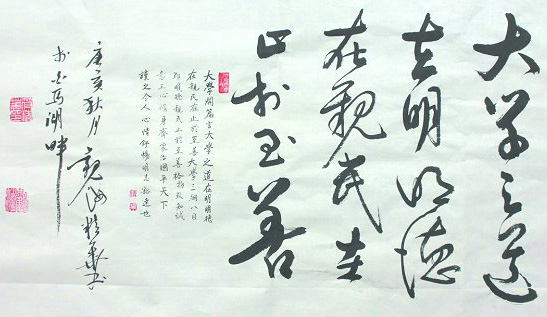 大学之道
在明明德
在親民在
止於至善
大學開篇言大學之道在明明德
在親民在止於至善大學三綱八目
即明德親民止於至善格物致知誠
意正心修身齊家治國平天下
讀之令人心情舒暢明志致遠也
亥秋月觀海
於金馬湖畔